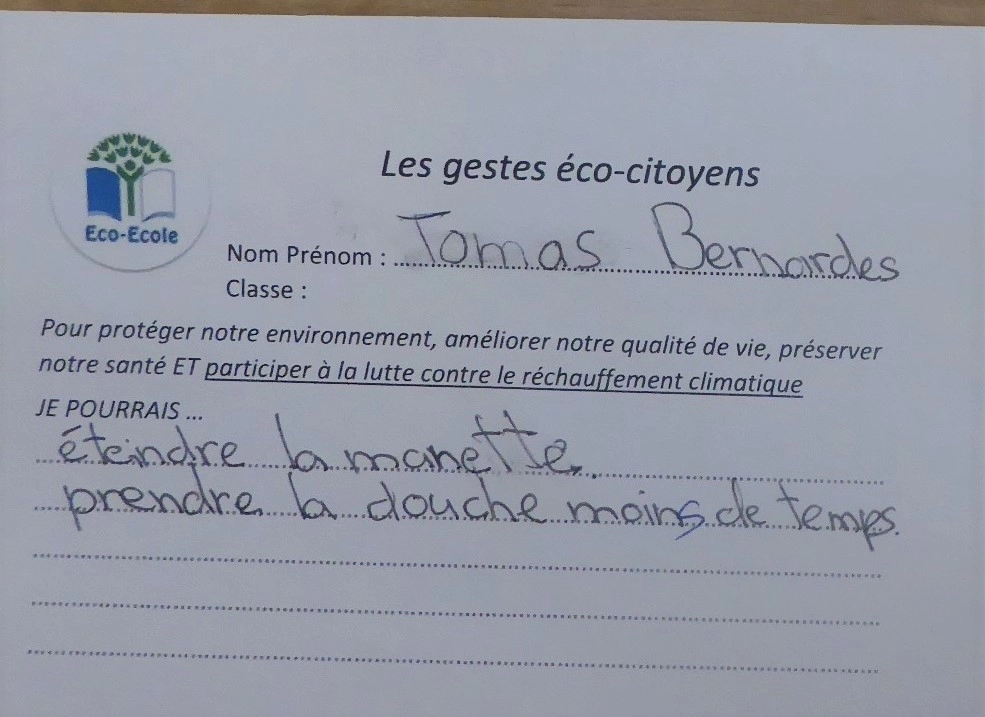 Eco-Ecole
Les gestes éco-citoyens
Nom Prénom : Tomas Bernardes
Classe :
Pour protéger notre environnement, améliorer notre qualité de vie, préserver
notre santé ET participer à la lutte contre le réchauffement climatique
JE POURRAIS ...
éteindre la manette.
prendre la douche moins de temps.